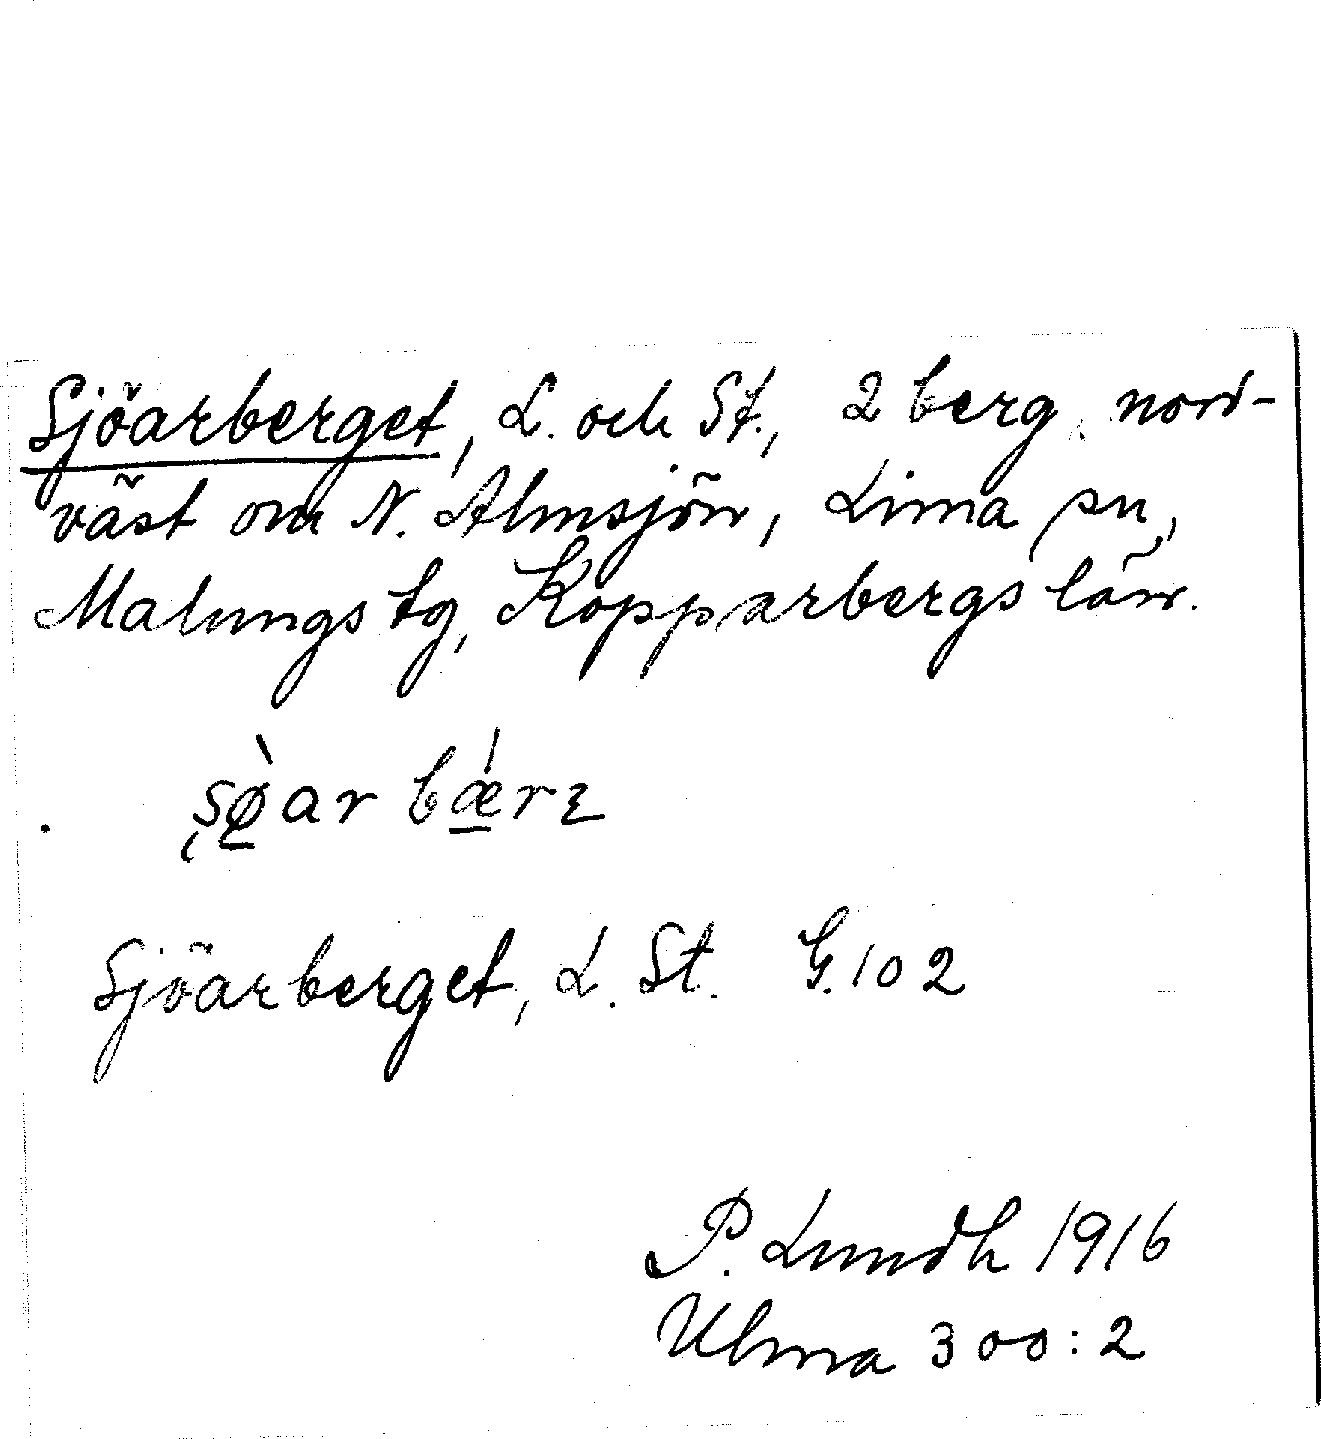 Sjöarberget, L. och St., 2 berg nord-
väst om N. Almsjön, Lima sn,
Malungs tg, Kopparbergs län.
ʂø̱̀ar bǽ̱rɿ
Sjöarberget, L. St. G.102
P. Lundh 1916
Ulma 300:2